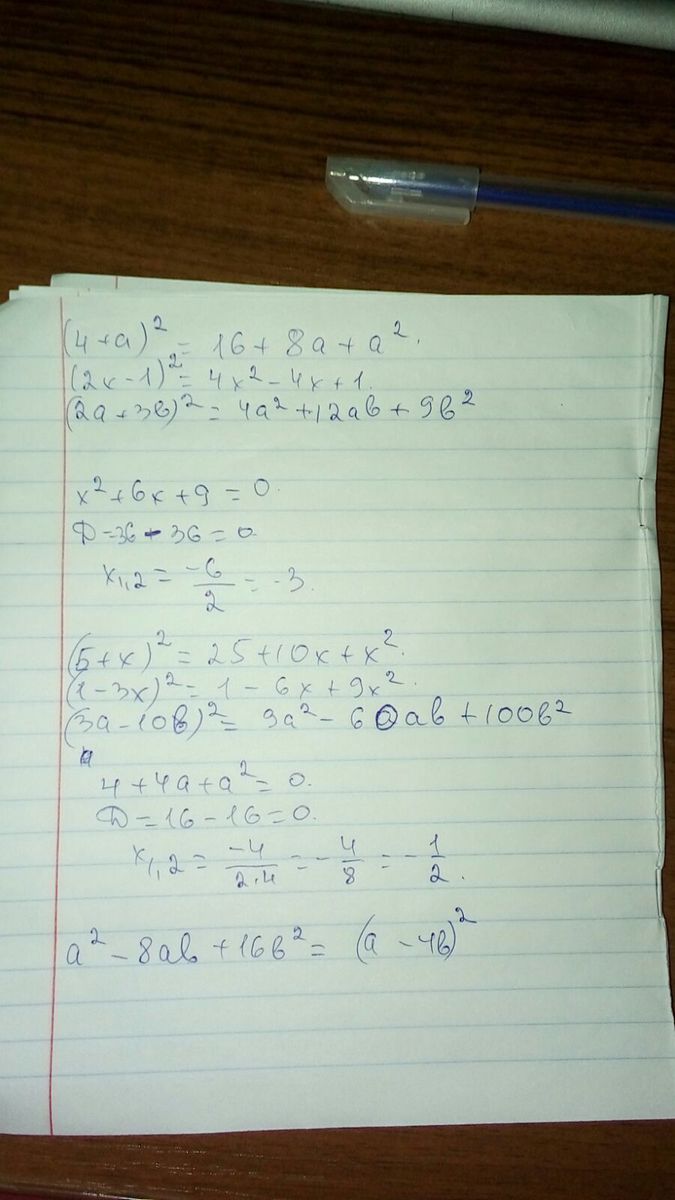 (4+a)² = 16 + 8a + a².
(2x-1)² = 4x² - 4x + 1.
(2a+3b)² = 4a² + 12ab + 9b²
x² + 6x + 9 = 0.
D = 36 - 36 = 0.
x₁,₂ = -6/2 = -3.
(5+x)² = 25 + 10x + x².
(1-3x)² = 1 - 6x + 9x².
(3a-10b)² = 9a² - 60ab + 100b²
4 + 4a + a² = 0.
D = 16 - 16 = 0.
x₁,₂ = -4/2·4 = -4/8 = -1/2.
a² - 8ab + 16b² = (a - 4b)²